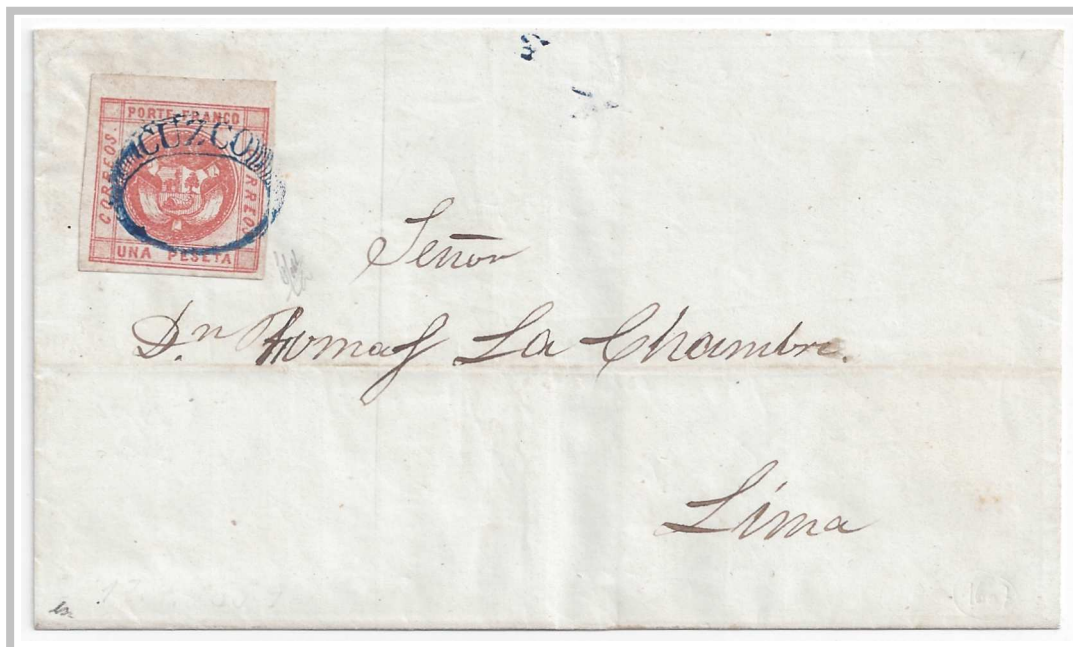 PORTE FRANCO
CORREOS.
CORREOS
UNA PESETA
CUZCO
Señor
Dn Thomas La Chambre.
Lima